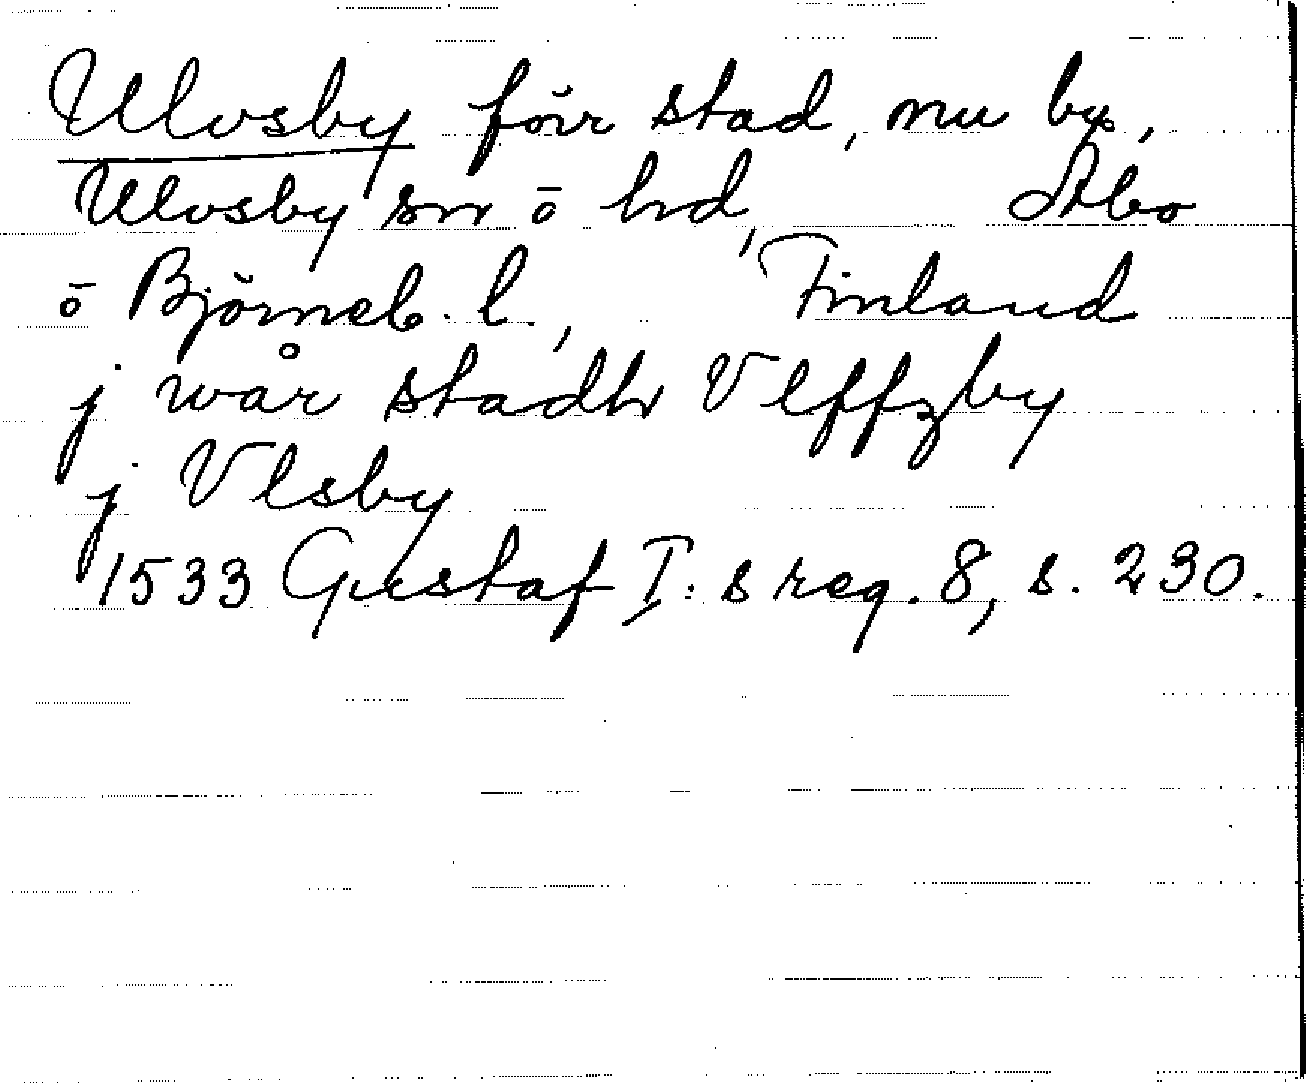 Ulvsby förr stad, nu by,
Ulvsby sn o hd, Åbo
o Björneb. l., Finland
j wår stadh Vlffzby
j Vlsby
1533 Gustaf I:s reg. 8, s. 230.